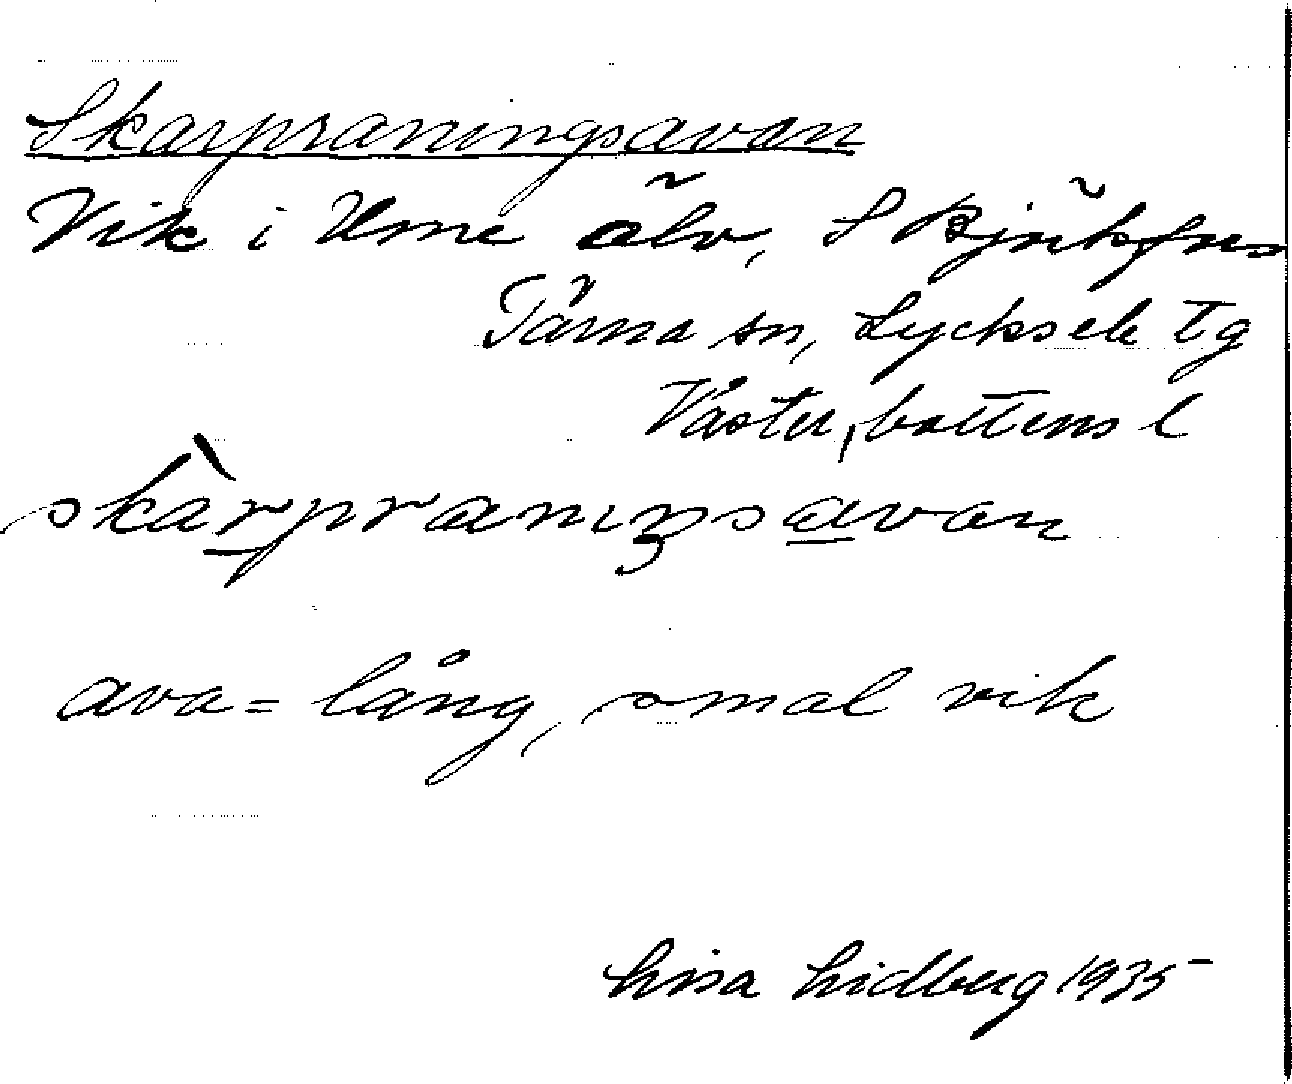 Skarpraningsavan
Vik i Ume älv, S Björkfors
Tärna sn, Lycksele tg
Västerbottens l
skàrpranıŋsavan
ava = lång, smal vik
Lisa Lidberg 1935